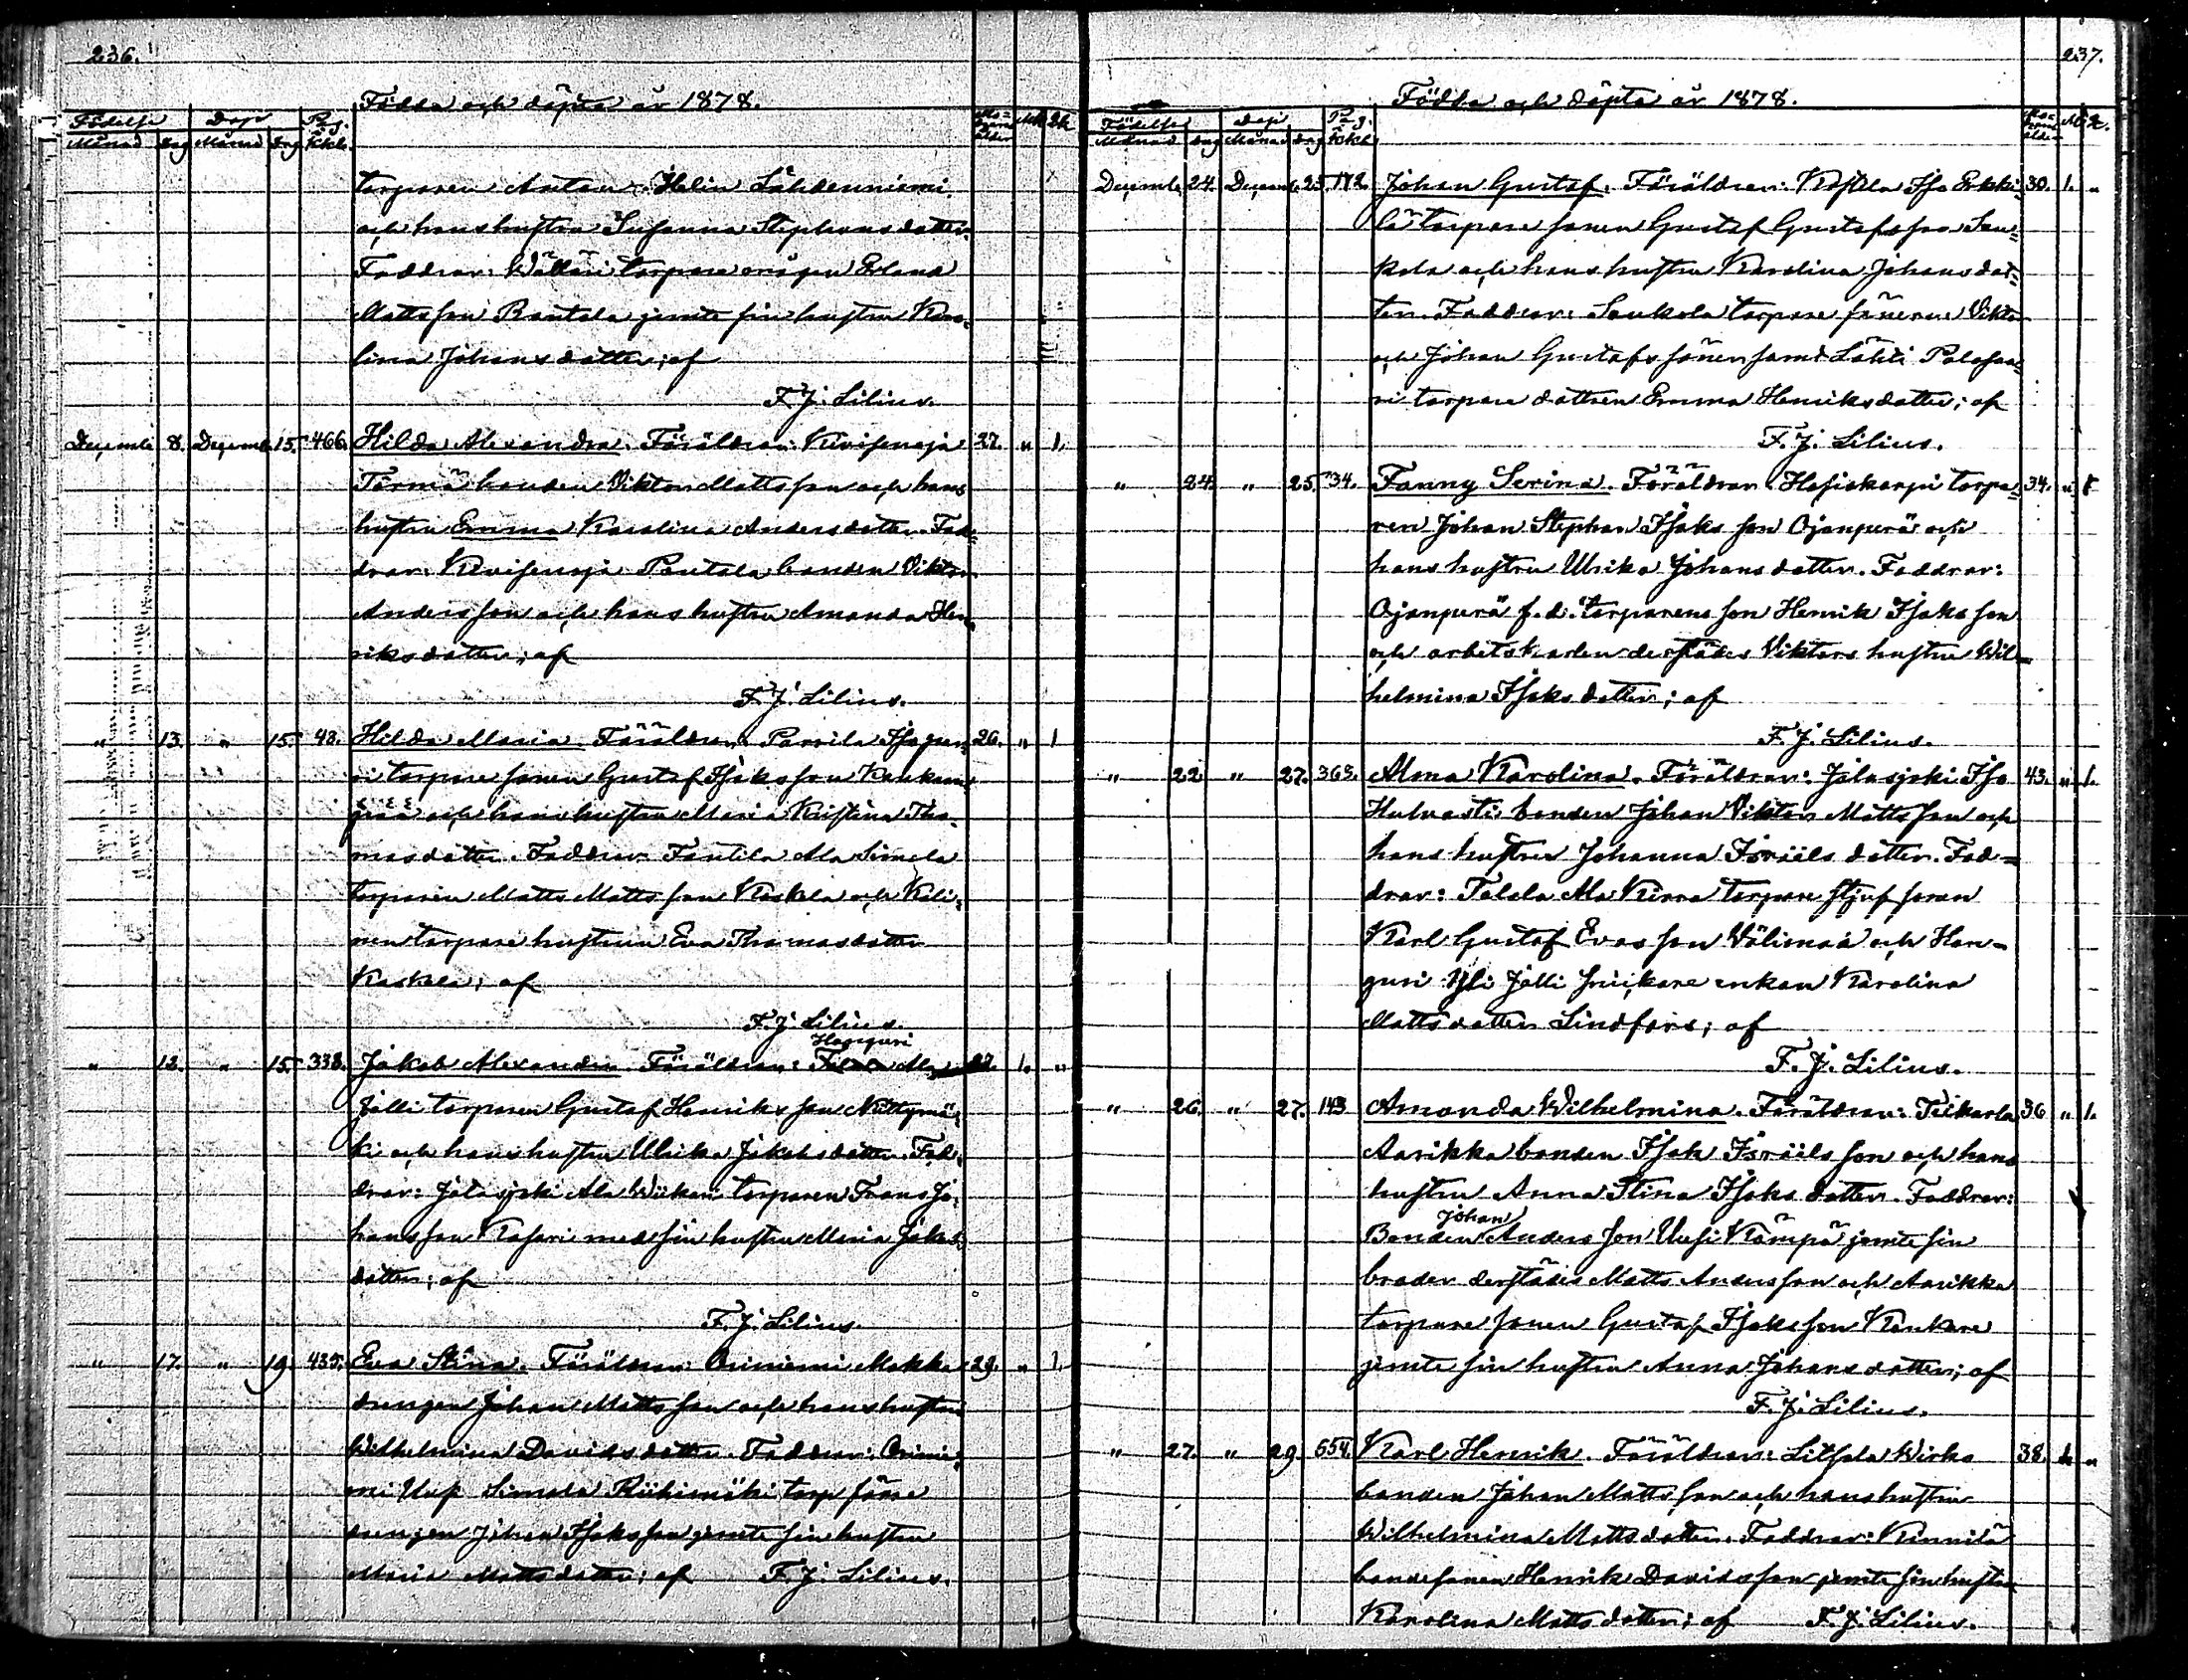 236.
Födda och döpta år 1878.
Födelse Dop Pag. i kkb. Moderns ålder Mk Qk
Månad dag Månad dag
torparen Anton Helin Lähdenniemi
och hans hustru Susanna Stephansdotter.
Faddrar: Wälläri torpare mågen Erland
Mattsson Rantala jemte sin hustru Karo-
lina Johansdotter; af
F. J. Lilius.
Decemb. 8. Decemb. 15. 466. Hilda Alexandra. Föräldrar: Kivisenoja 27. " 1.
Törmä bonden Viktor Mattsson och hans
hustru Emma Karolina Andersdotter. Fad-
drar: Kivisenoja Pentala bonden Viktor
Andersson och hans hustru Amanda Hen-
riksdotter; af
F. J. Lilius.
" 13. " 15. 48. Hilda Maria. Föräldrar: Parrila Isopere 26. " 1
ri torpare sonen Gustaf Isaksson Kankaan
pää och hans hustru Maria Kristina Tho-
masdotter. Faddrar: Fantila Ala Simola
torparen Matts Mattsson Kaskela och Käli-
nen torpare hustrun Eva Thomasdotter
Kaskela; af
F. J. Lilius.
Hanguri
" 12. " 15. 338. Jakob Alexander Föräldrar: Ala 27. 1. "
Jälli torparen Gustaf Henriksson Nättymä-
ki och hans hustru Ulrika Jakobsdotter. Fad-
drar: Jalasjoki Ala Wikari torparen Frans Jo-
hansson Kasari med sin hustru Maria Jakobs-
dotter; af
F. J. Lilius.
" 17. " 19. 435. Eva Stina. Föräldrar: Oriniemi Makka 29. " 1.
drengen Johan Mattsson och hans hustru
Wilhelmina Davidsdotter. Faddrar: Orinie-
mi Uusi Simola Riihimäki torp förre
drengen Johan Isaksson jemte sin hustru
Maria Mattsdotter; af F. J. Lilius.
237.
Födda och döpta år 1878.
Födelse Dop Pag. i kkb. Moderns ålder Mk Qk.
Månad dag Månad dag
Decemb. 24. Decemb. 25. 172. Johan Gustaf. Föräldrar: Kostila Iso Erkki- 30. 1. "
lä torpare sonen Gustaf Gustafsson Sau-
kola och hans hustru Karolina Johansdot-
ter. Faddrar: Saukola torpare sönerne Viktor
och Johan Gustafs söner samt Lähti Palosaa-
ri torpare dottren Emma Henriksdotter; af
F. J. Lilius.
" 24. " 25. 734. Fanny Serina. Föräldrar: Hosiokarpi torpa- 34. " 1
ren Johan Stephan Isaksson Ojanperä och
hans hustru Ulrika Johansdotter. Faddrar:
Ojanperä f.d. torparens son Henrik Isaksson
och arbetskarlen derstädes Viktors hustru Wil-
helmina Isaksdotter; af
F. J. Lilius.
" 22. " 27. 365. Alma Karolina. Föräldrar: Jalasjoki Iso 43. " 1.
Hulvasti bonden Johan Viktor Mattsson och
hans hustru Johanna Israëls dotter. Fad-
drar: Talala Ala Kirra torpare stjuf sonen
Karl Gustaf Evasson Välimaa och Han-
guri Yli Jälli snickare enkan Karolina
Mattsdotter Lindfors; af
F. J. Lilius.
" 26. " 27. 143 Amanda Wilhelmina. Föräldrar: Teikarla 36 " 1.
Aarikka bonden Isak Israëlsson och hans
hustru Anna Stina Isaksdotter. Faddrar:
Johan
Bonden Andersson Uusi Kämpä jemte sin
broder derstädes Matts Andersson och Aarikka
torpare sonen Gustaf Isaksson Kenkare
jemte sin hustru Anna Johansdotter; af
F. J. Lilius.
" 27. " 29. 654. Karl Henrik. Föräldrar: Litsola Wirko 38. 1. "
bonden Johan Mattsson och hans hustru
Wilhelmina Mattsdotter. Faddrar: Kinnilä
bondesonen Henrik Davidsson jemte sin hustru
Karolina Mattsdotter; af F. J. Lilius.